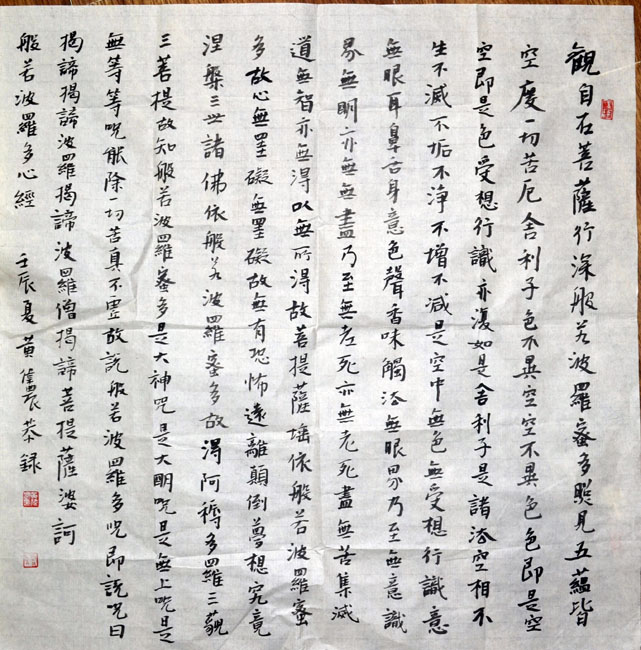 觀自在菩薩行深般若波羅蜜多照見五蘊皆
空度一切苦厄舍利子色不異空空不異色色即是空
空即是色受想行識亦復如是舍利子是諸法空相不
生不滅不垢不淨不增不減是空中無色無受想行識意
無眼耳鼻舌身意色聲香味觸法無眼界乃至無意識
界無明亦無無盡乃至無老死亦無老死盡無苦集滅
道無智亦無得以無所得故菩提薩埵依般若波羅蜜
多故心無罣礙無罣礙故無有恐怖遠離顛倒夢想究竟
涅槃三世諸佛依般若波羅蜜多故得阿耨多羅三藐
三菩提故知般若波羅蜜多是大神咒是大明咒是無上咒是
無等等咒能除一切苦真不虛故說般若波羅多咒即說咒曰
揭諦揭諦波羅揭諦波羅僧揭諦菩提薩婆訶
般若波羅多心經 壬辰夏黃農恭録